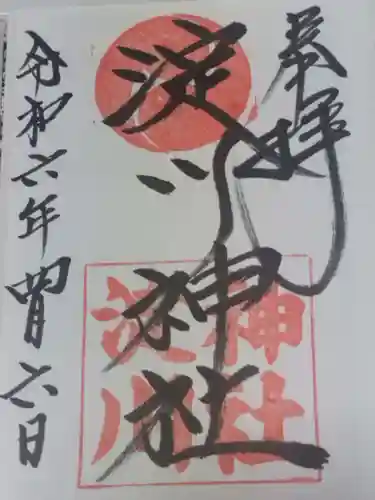 奉拝
淀川神社
神社
淀川
令和六年四月六日